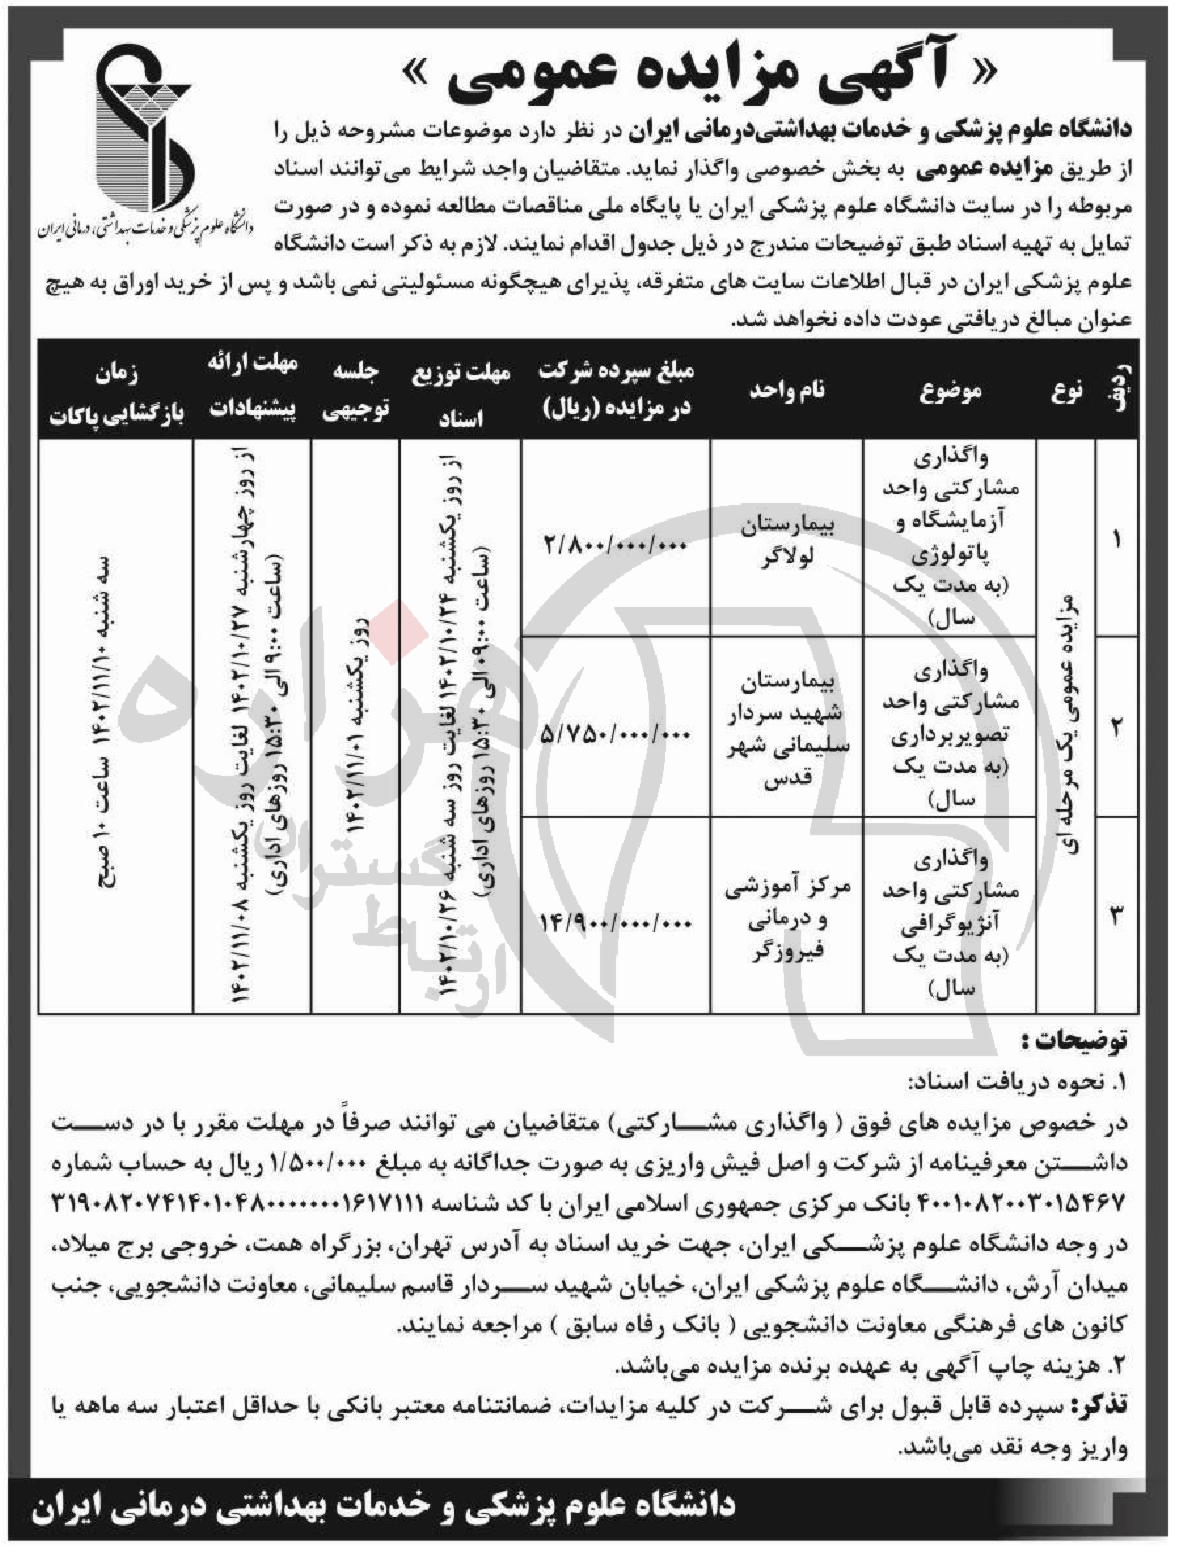 « آگهی مزایده عمومی »
دانشگاه علوم پزشکی و خدمات بهداشتی، درمانی ایران
دانشگاه علوم پزشکی و خدمات بهداشتی‌درمانی ایران در نظر دارد موضوعات مشروحه ذیل را
از طریق مزایده عمومی به بخش خصوصی واگذار نماید. متقاضیان واجد شرایط می‌توانند اسناد
مربوطه را در سایت دانشگاه علوم پزشکی ایران یا پایگاه ملی مناقصات مطالعه نموده و در صورت
تمایل به تهیه اسناد طبق توضیحات مندرج در ذیل جدول اقدام نمایند. لازم به ذکر است دانشگاه
علوم پزشکی ایران در قبال اطلاعات سایت های متفرقه، پذیرای هیچگونه مسئولیتی نمی باشد و پس از خرید اوراق به هیچ
عنوان مبالغ دریافتی عودت داده نخواهد شد.
ردیف
نوع
موضوع
نام واحد
مبلغ سپرده شرکت
در مزایده (ریال)
مهلت توزیع
اسناد
جلسه
توجیهی
مهلت ارائه
پیشنهادات
زمان
بازگشایی پاکات
۱
مزایده عمومی یک مرحله ای
واگذاری
مشارکتی واحد
آزمایشگاه و
پاتولوژی
(به مدت یک
سال)
بیمارستان
لولاگر
۲/۸۰۰/۰۰۰/۰۰۰
از روز یکشنبه ۱۴۰۲/۱۰/۲۴ لغایت روز سه شنبه ۱۴۰۲/۱۰/۲۶
(ساعت ۰۹:۰۰ الی ۱۵:۳۰ روزهای اداری)
روز یکشنبه ۱۴۰۲/۱۱/۰۱
از روز چهارشنبه ۱۴۰۲/۱۰/۲۷ لغایت روز یکشنبه ۱۴۰۲/۱۱/۰۸
(ساعت ۹:۰۰ الی ۱۵:۳۰ روزهای اداری)
سه شنبه ۱۴۰۲/۱۱/۱۰ ساعت ۱۰ صبح
۲
واگذاری
مشارکتی واحد
تصویربرداری
(به مدت یک
سال)
بیمارستان
شهید سردار
سلیمانی شهر
قدس
۵/۷۵۰/۰۰۰/۰۰۰
۳
واگذاری
مشارکتی واحد
آنژیوگرافی
(به مدت یک
سال)
مرکز آموزشی
و درمانی
فیروزگر
۱۴/۹۰۰/۰۰۰/۰۰۰
هزاره
گستران
ارتباط
توضیحات :
۱. نحوه دریافت اسناد:
در خصوص مزایده های فوق ( واگذاری مشارکتی) متقاضیان می توانند صرفاً در مهلت مقرر با در دست
داشتن معرفینامه از شرکت و اصل فیش واریزی به صورت جداگانه به مبلغ ۱/۵۰۰/۰۰۰ ریال به حساب شماره
۴۰۰۱۰۸۲۰۰۳۰۱۵۴۶۷ بانک مرکزی جمهوری اسلامی ایران با کد شناسه ۳۱۹۰۸۲۰۷۴۱۴۰۱۰۴۸۰۰۰۰۰۰۰۱۶۱۷۱۱۱
در وجه دانشگاه علوم پزشکی ایران، جهت خرید اسناد به آدرس تهران، بزرگراه همت، خروجی برج میلاد،
میدان آرش، دانشگاه علوم پزشکی ایران، خیابان شهید سردار قاسم سلیمانی، معاونت دانشجویی، جنب
کانون های فرهنگی معاونت دانشجویی ( بانک رفاه سابق ) مراجعه نمایند.
۲. هزینه چاپ آگهی به عهده برنده مزایده می‌باشد.
تذکر: سپرده قابل قبول برای شرکت در کلیه مزایدات، ضمانتنامه معتبر بانکی با حداقل اعتبار سه ماهه یا
واریز وجه نقد می‌باشد.
دانشگاه علوم پزشکی و خدمات بهداشتی درمانی ایران